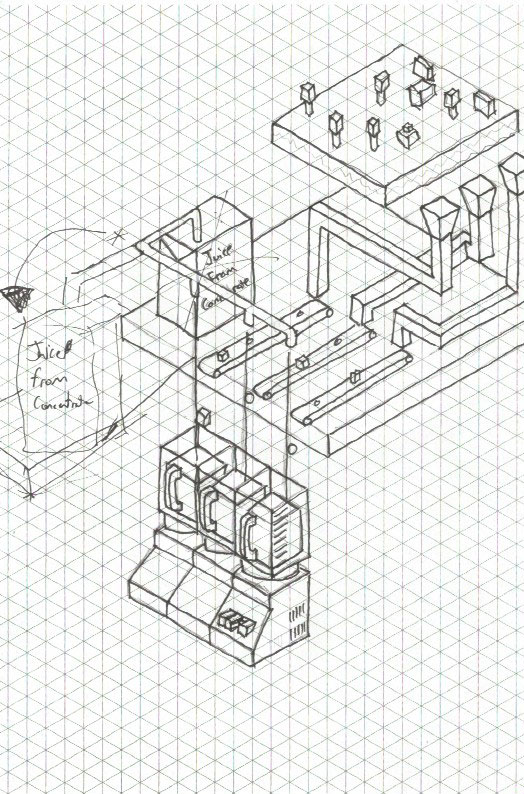 Juice
From
Concentrate
Juice
from
Concentrate